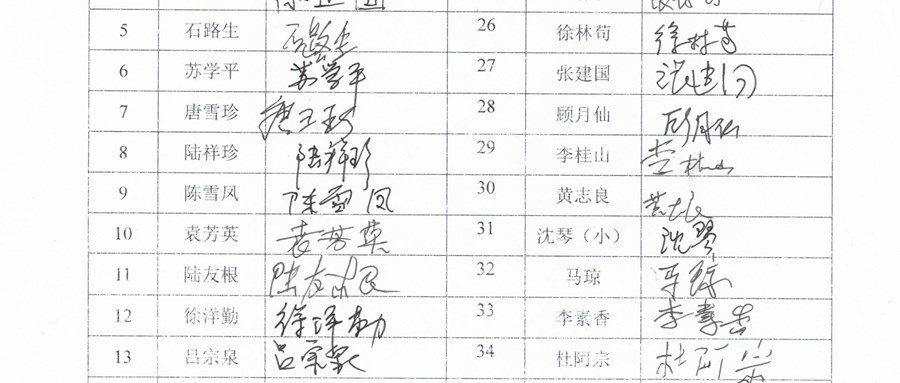 5 石路生 石路生 26 徐林荀 徐林苟
6 苏学平 苏学平 27 张建国 张建国
7 唐雪珍 唐玉珍 28 顾月仙 顾月仙
8 陆祥珍 陆祥珍 29 李桂山 李桂山
9 陈雪凤 陈雪凤 30 黄志良 黄志良
10 袁芳英 袁芳英 31 沈琴（小） 沈琴
11 陆友根 陆友根 32 马琼 马琼
12 徐洋勤 徐洋勤 33 李素香 李素香
13 吕宗泉 吕宗泉 34 杜阿宗 杜阿宗